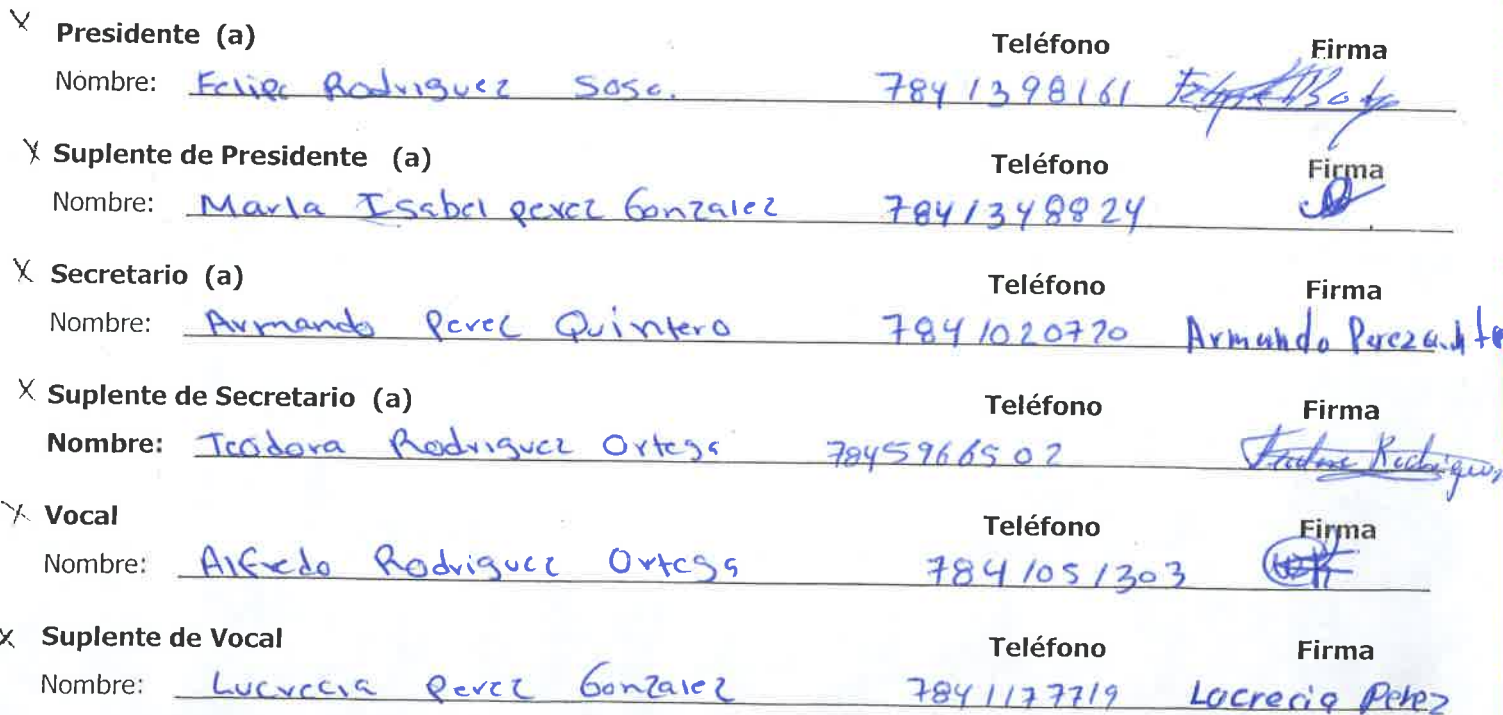 X Presidente (a) Teléfono Firma
Nombre: Felipe Rodriguez Sosa. 7841398161
X Suplente de Presidente (a) Teléfono Firma
Nombre: Maria Isabel perez Gonzalez 7841348824
X Secretario (a) Teléfono Firma
Nombre: Armando Perez Quintero 7841020770 Armando Perez
X Suplente de Secretario (a) Teléfono Firma
Nombre: Teodora Rodriguez Ortega 7845966502
X Vocal Teléfono Firma
Nombre: Alfredo Rodriguez Ortega 7841051303
X Suplente de Vocal Teléfono Firma
Nombre: Lucrecia Perez Gonzalez 7841177719 Lucrecia Perez